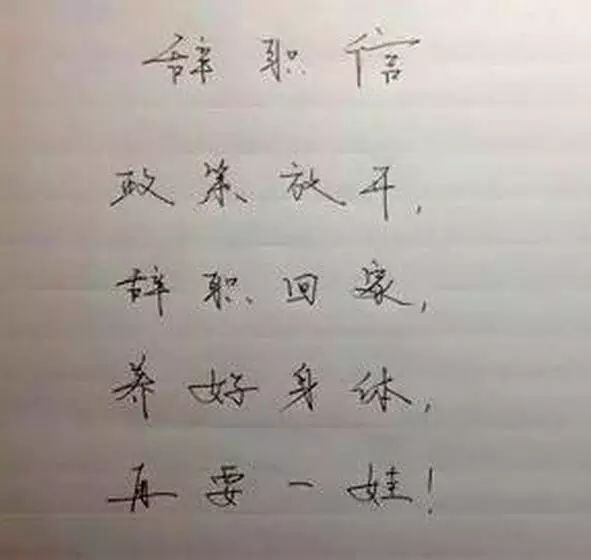 辞职信
政策放开，
辞职回家，
养好身体，
再要一娃！